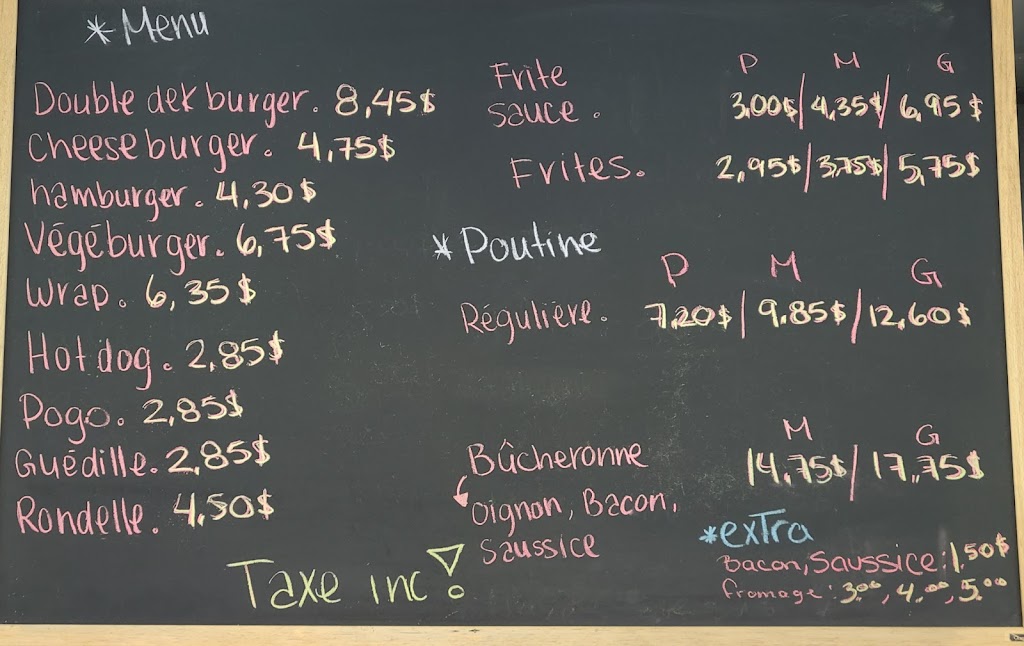 *Menu
Double dek burger. 8,45$
Cheese burger. 4,75$
hamburger. 4,30$
Végéburger. 6,75$
Wrap. 6,35$
Hot dog. 2,85$
Pogo. 2,85$
Guédille. 2,85$
Rondelle. 4,50$
Taxe inc!
P M G
Frite
sauce. 3,00$/4,35$/6,95$
Frites. 2,95$/3,75$/5,75$
*Poutine
P M G
Régulière. 7,20$/9,85$/12,60$
M G
Bûcheronne 14,75$/17,75$
Oignon, Bacon,
Saussice
*exTra
Bacon, Saussice: 1,50$
fromage: 3.00, 4.00, 5.00